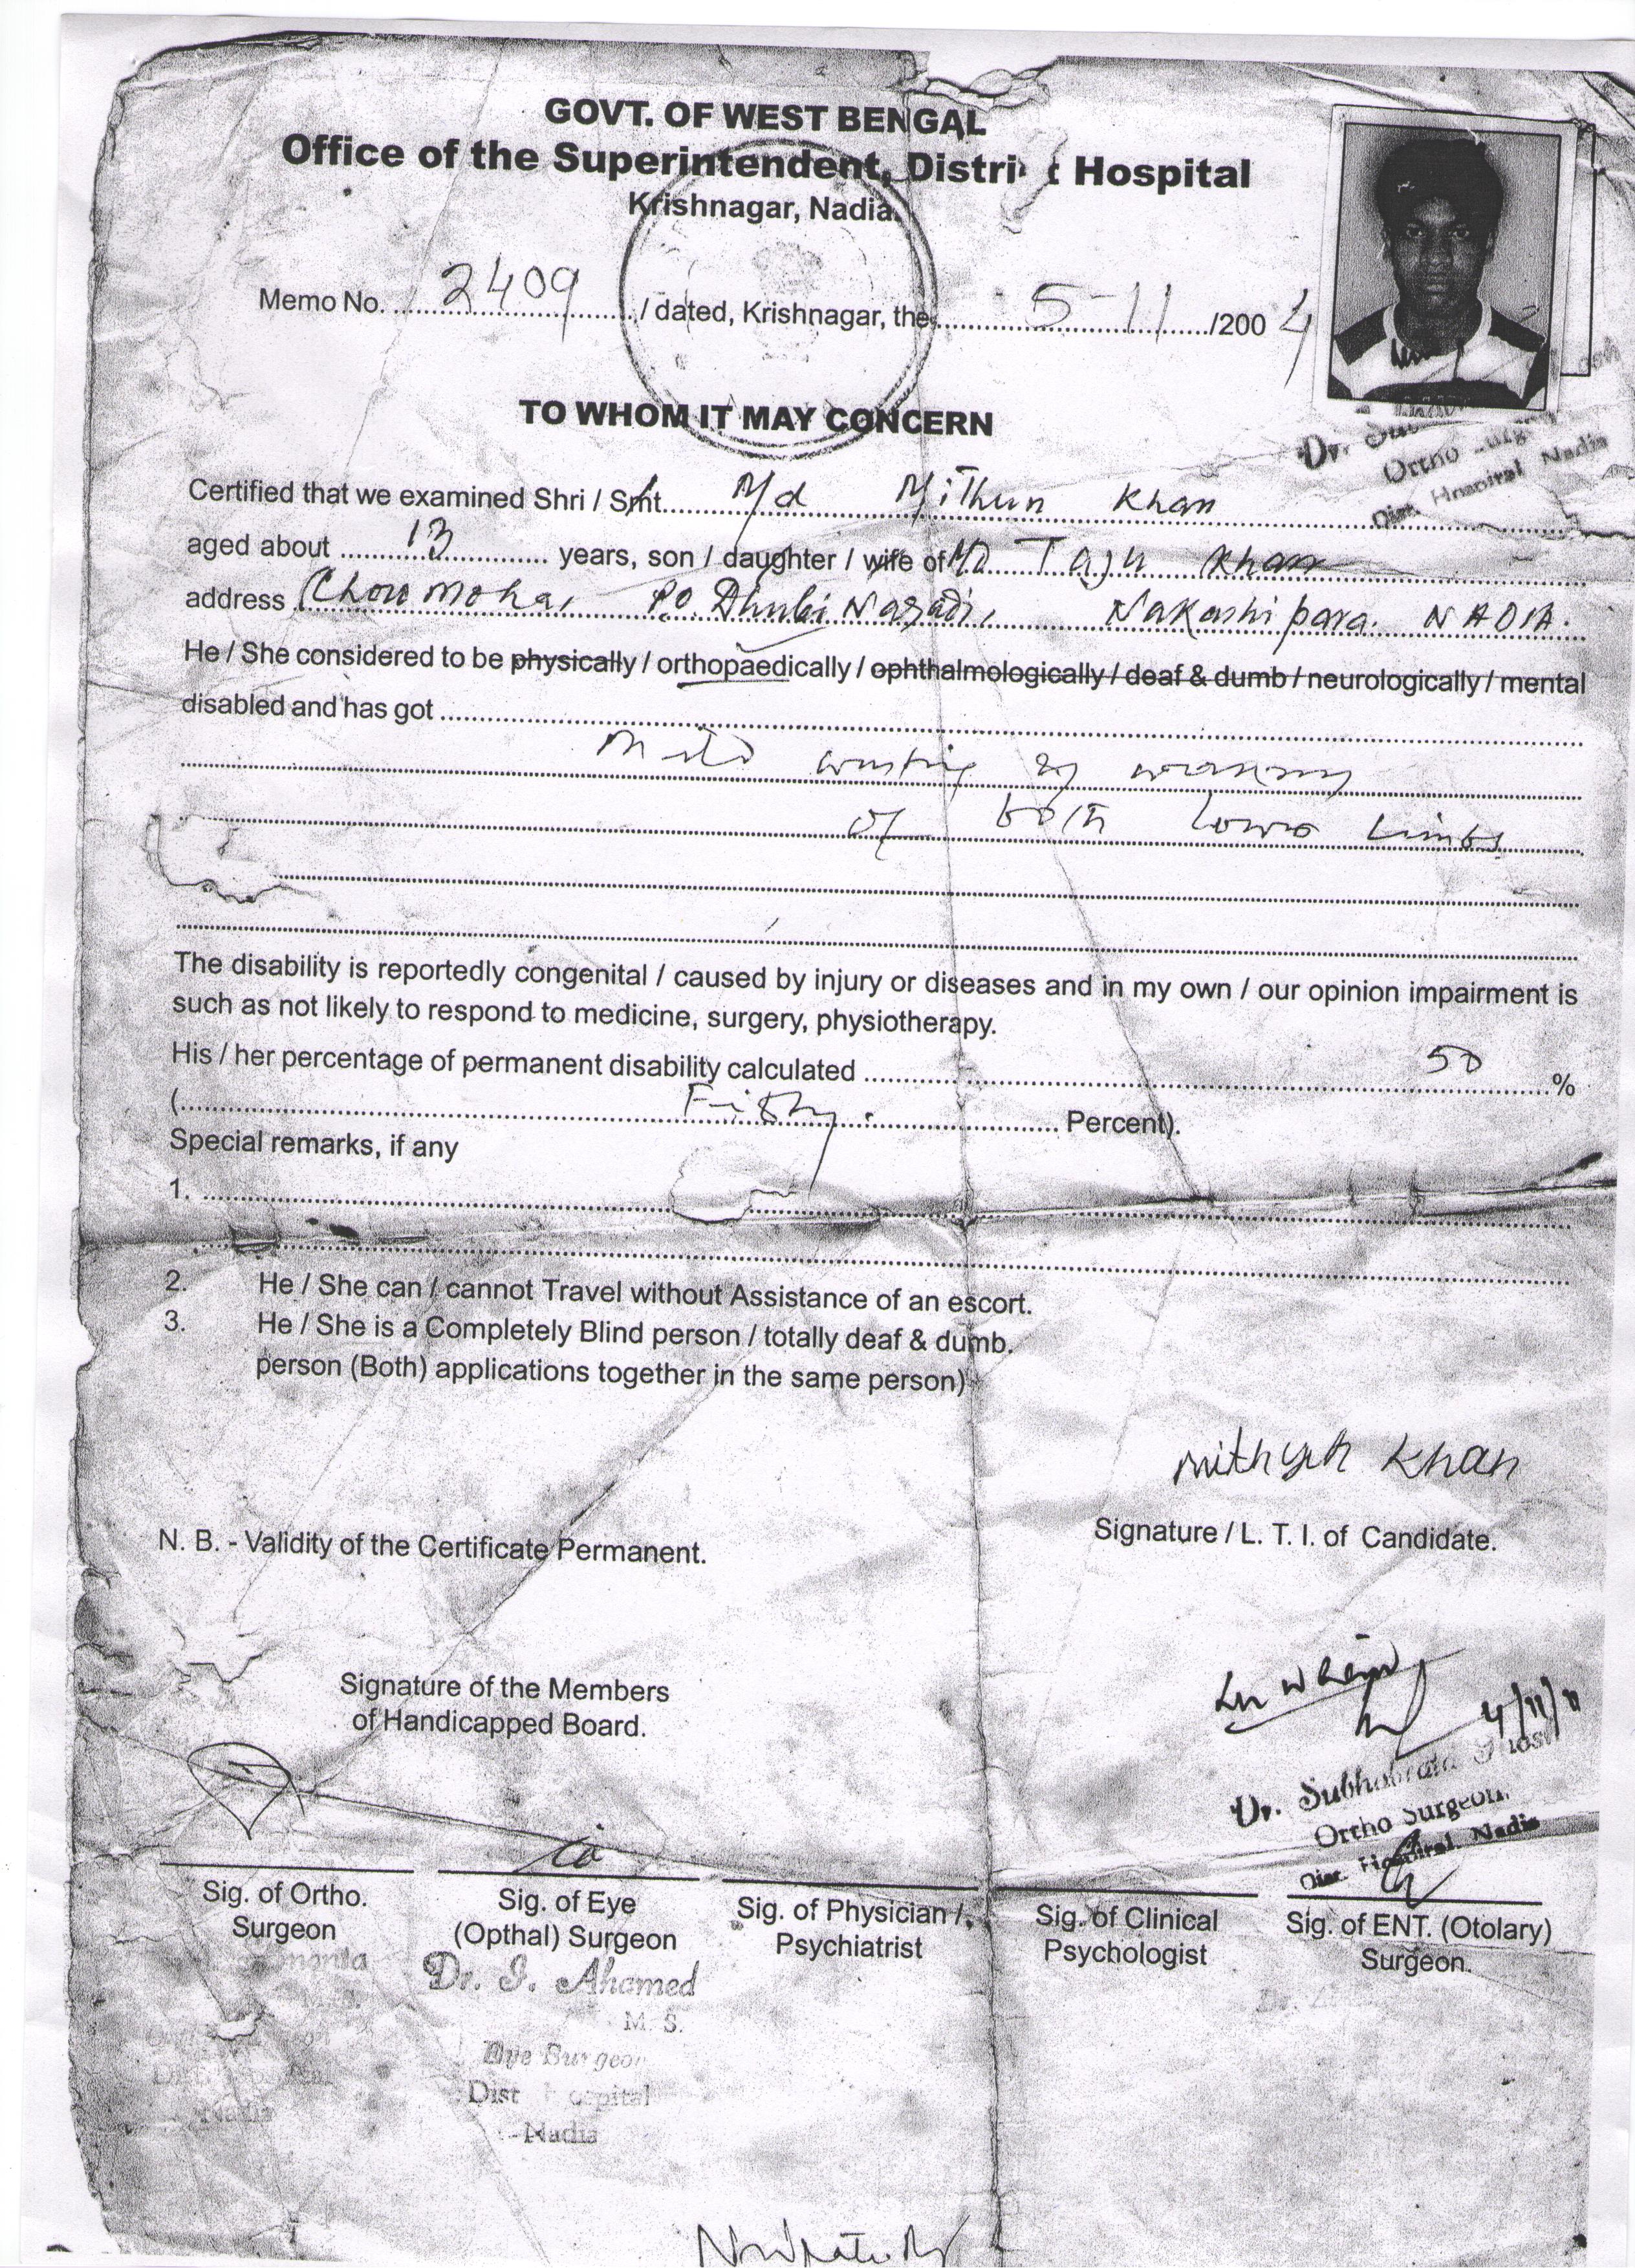 GOVT. OF WEST BENGAL
Office of the Superintendent, District Hospital
Krishnagar, Nadia
Memo No. 2409 / dated, Krishnagar, the 5-11 /2004
TO WHOM IT MAY CONCERN
Dr.
Ortho
Dist. Hospital Nadia
Certified that we examined Shri / Smt. Md Mithun Khan
aged about 13 years, son / daughter / wife of Md Taju Khan
address Chowmoha, P.O. Dhubi Nagadi, Nakashipara. NADIA.
He / She considered to be physically / orthopaedically / ophthalmologically / deaf & dumb / neurologically / mental
disabled and has got
Mild wasting
of both lower Limbs
The disability is reportedly congenital / caused by injury or diseases and in my own / our opinion impairment is
such as not likely to respond to medicine, surgery, physiotherapy.
His / her percentage of permanent disability calculated 50 %
( Fifty. Percent).
Special remarks, if any
1.
2. He / She can / cannot Travel without Assistance of an escort.
3. He / She is a Completely Blind person / totally deaf & dumb.
person (Both) applications together in the same person)
Mithun Khan
Signature / L. T. I. of Candidate.
N. B. - Validity of the Certificate Permanent.
Signature of the Members
of Handicapped Board.
Dr. Subhabrata
Ortho Surgeon,
Dist. Hospital Nadia
Sig. of Ortho.
Surgeon
Sig. of Eye
(Opthal) Surgeon
Sig. of Physician /
Psychiatrist
Sig. of Clinical
Psychologist
Sig. of ENT. (Otolary)
Surgeon.
Dr. J. Ahamed
M. S.
Eye Surgeon
Dist Hospital
Nadia
Nadia